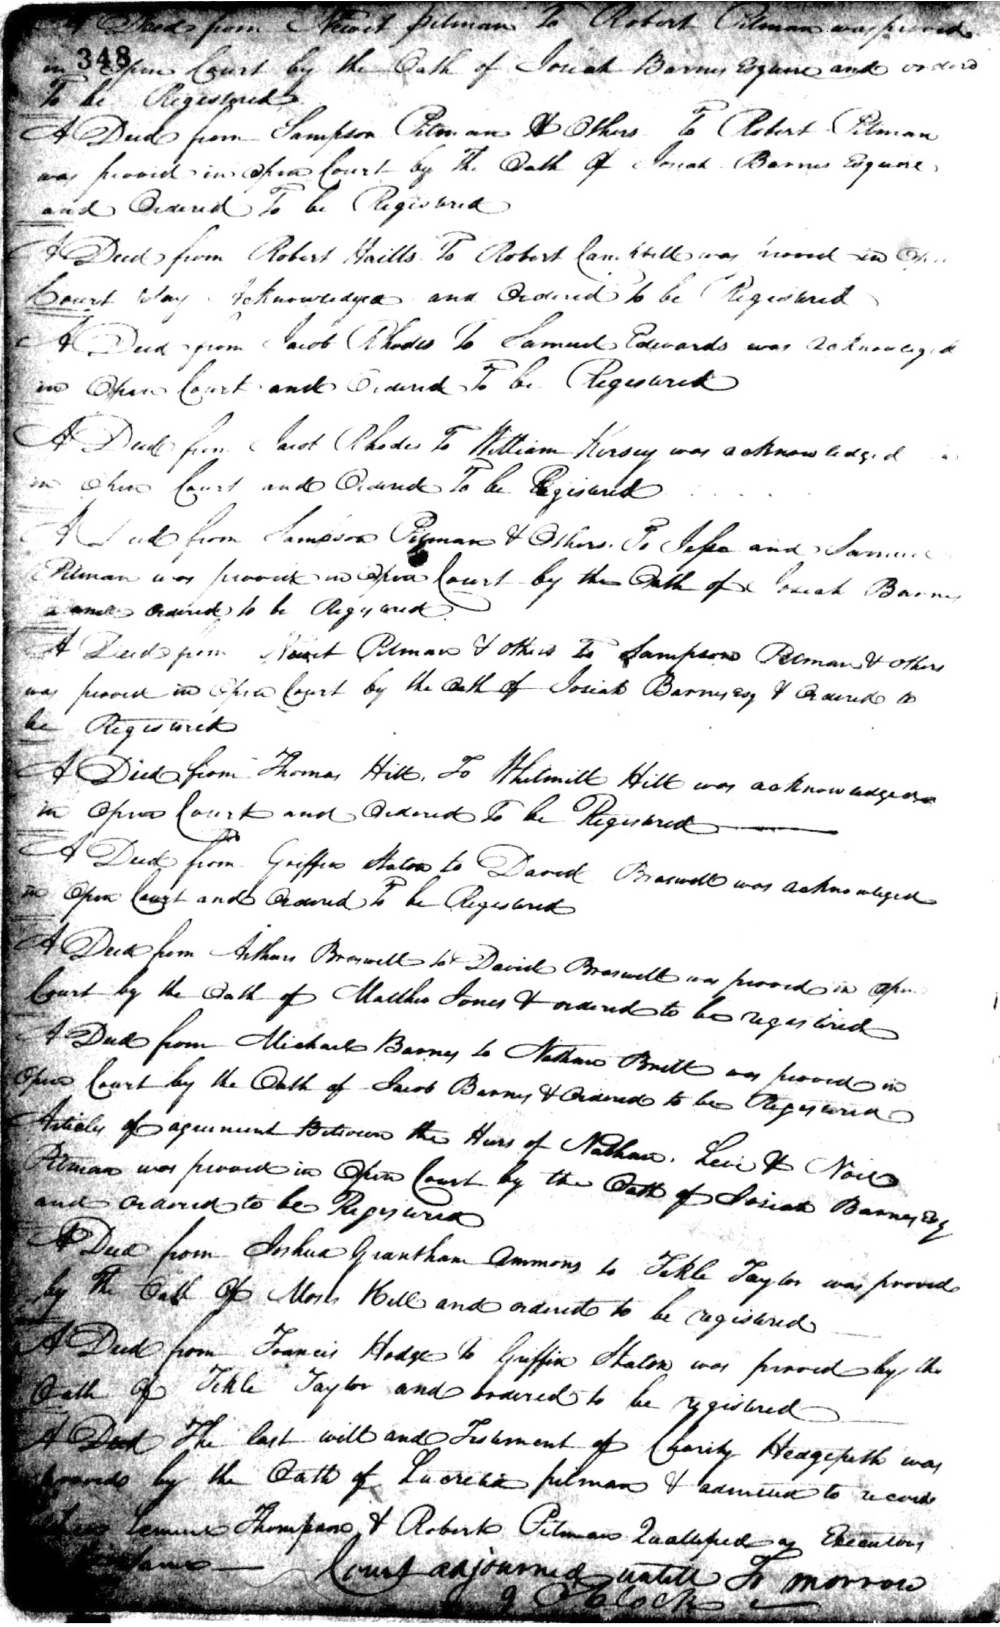 A Deed from Newit pitman To Robert Pitman was proved
348
in Open Court by the Oath of Josiah Barnes Esquire and ordered
To be Registered
A Deed from Sampson Pitman & Others To Robert Pitman
was proved in Open Court by The Oath Of Josiah Barnes Esquire
and Ordered To be Registered
A Deed from Robert To Robert Campbell was in Open
Court Acknowledged and Ordered to be Registered
A Deed from Jacob Rhodes to Samuel Edwards was acknowleged
in Open Court and Ordered To be Registered
A Deed from Jacob Rhodes To William Kersey was acknowledged
in Open Court and Ordered To be Registered
A Deed from Sampson Pitman & Others To Jesse and Samuel
Pitman was proved in Open Court by the Oath of Josiah Barnes
and ordered to be Registered
A Deed from Newit Pitman & others to Sampson Pitman & others
was proved in Open Court by the Oath of Josiah Barnes Esq & Ordered to
be Registered
A Deed from Thomas Hill To Whitmill Hill was acknowledged
in Open Court and Ordered To be Registered
A Deed from Griffin Staton to David Braswell was acknowleged
in Open Court and Ordered To be Registered
A Deed from Arthur Braswell to David Braswell was proved in Open
Court by the Oath of Matthew Jones & ordered to be registered
A Deed from Michael Barnes to Nathan Britt was proved in
Open Court by the Oath of Jacob Barnes & Ordered to be Registered
Articles of agreement Between the Heirs of Nathan Levi &
Pitman was proved in Open Court by the Oath of Josiah Barnes Esq
and ordered to be Registered
A Deed from Joshua Grantham Ammons to Tekle Taylor was proved
by The Oath Of Moses and ordered to be registered
A Deed from Francis Hodge to Griffin Staton was proved by the
Oath Of Tekle Taylor and ordered to be registered
A Deed The last will and Testament of Charity Hedgepeth was
proved by the Oath of Lucretia pitman & admitted to record
Thompson & Robert Pitman Qualifyed as Executors
Court adjourned untill To morrow
9 OClock